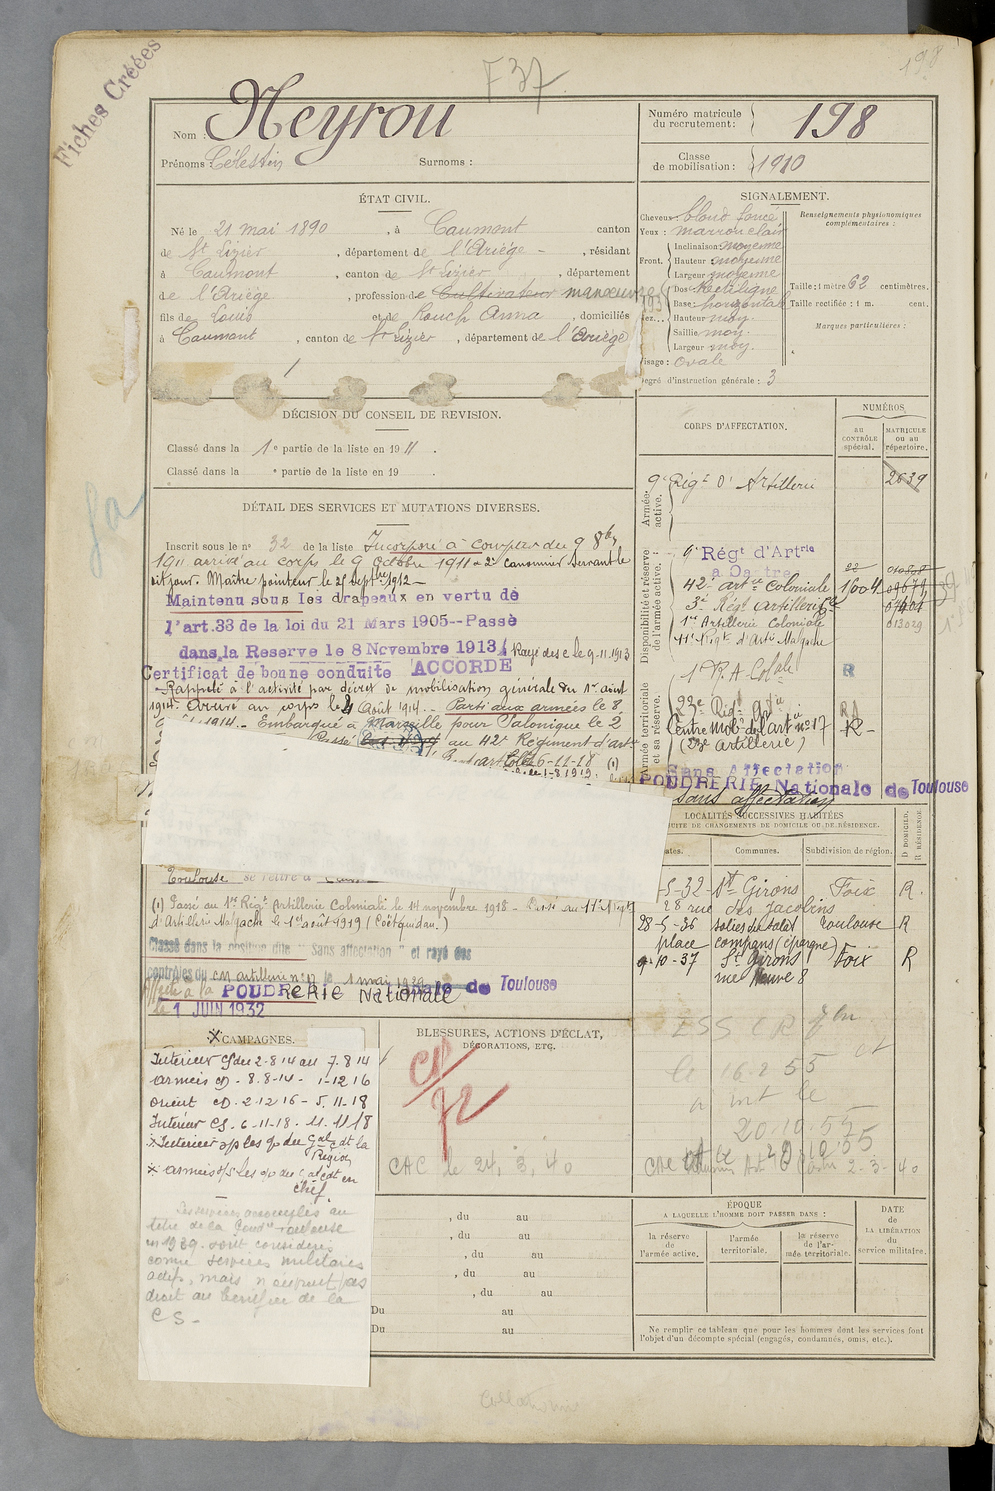 Fiches Créées
F 37
198
Nom : Neyrou
Prénoms : Célestin Surnoms :
Numéro matricule du recrutement : 198
Classe de mobilisation : 1910
ÉTAT CIVIL.
Né le 21 mai 1890, à Caumont canton
de St Lizier, département de l'Ariège -, résidant
à Caumont, canton de St Lizier, département
de l'Ariège, profession de Cultivateur manœuvre
fils de Louis et de Rouch Anna, domiciliés
à Caumont, canton de St Lizier, département de l'Ariège
SIGNALEMENT.
Cheveux blond foncé
Yeux : marron clair
Front. Inclinaison moyenne
Hauteur moyenne
Largeur moyenne
Nez. Dos rectiligne
Base : horizontal
Hauteur moy.
Saillie moy.
Largeur moy.
Visage : ovale
Degré d'instruction générale : 3
Renseignements physionomiques complémentaires :
Taille : 1 mètre 62 centimètres.
Taille rectifiée : 1 m. cent.
Marques particulières :
DÉCISION DU CONSEIL DE REVISION.
Classé dans la 1e partie de la liste en 1911.
Classé dans la e partie de la liste en 19 .
DÉTAIL DES SERVICES ET MUTATIONS DIVERSES.
Inscrit sous le no 32 de la liste Incorporé à compter du 9 8bre
1911 arrivé au corps le 9 octobre 1911 2e canonnier servant le
dit jour. Maître pointeur le 25 septbre 1912 -
Maintenu sous les drapeaux en vertu de
l'art. 33 de la loi du 21 Mars 1905--Passé
dans la Reserve le 8 Novembre 1913 Rayé des c le 9.11.1913
Certificat de bonne conduite ACCORDÉ
Rappelé à l'activité par décret de mobilisation générale du 1er août
1914. Arrivé au corps le 4 Août 1914. - Parti aux armées le 8
1914 - Embarqué à Marseille pour Salonique le 2
Passé au 42e Régiment d'artie
6-11-18 (1)
1-8-1919.
Toulouse se retire à
(1) Passé au 1er Régt Artillerie Coloniale le 14 novembre 1918 - Passé au 11e Régt
d'Artillerie Malgache le 1er août 1919 (Coëtquidan.)
Classé dans la position dite " Sans affectation " et rayé des
contrôles du CM artillerie no 17 le 1 mai 1929
Affecté à la POUDRERIE Nationale de Toulouse
le 1 JUIN 1932
CORPS D'AFFECTATION.
NUMÉROS
AU CONTRÔLE spécial.
MATRICULE ou au répertoire.
Armée active.
9e Régt d'Artillerie 2639
Disponibilité et réserve de l'armée active.
9e Régt d'Artrie
à Castres
42e artie Coloniale 1004
3e Régt Artillerie Cle
1er Artillerie Coloniale 013029
11e Régt d'Artie Malgache
Armée territoriale et sa réserve.
1 R.A. Colale R
23e Régt Artie
Centre Mob. de l'art no 17 R
(23e Artillerie)
Sans Affectation
POUDRERIE Nationale de Toulouse
sans affectation
LOCALITÉS SUCCESSIVES HABITÉES
PAR SUITE DE CHANGEMENTS DE DOMICILE OU DE RÉSIDENCE.
Dates. Communes. Subdivision de région. D DOMICILE. R RÉSIDENCE
-5-32 - St Girons Foix R.
28 rue des Jacobins
28-5-36 Salies du Salat Toulouse R
place compans (épargne)
9-10-37 St Girons Foix R
rue Neuve 8
le 16-2 55
20.10.55
CAMPAGNES.
Intérieur CS du 2-8-14 au 7-8-14
armées CD - 8-8-14 - 1-12 16
Orient CD - 2-12 16 - 5.11-18
Intérieur CS. 6-11-18 - 11.11.18
x Intérieur ap les qo du Gal Cdt la
Région
x armées ap les qo du Gal cdt en
Chef.
Les services accomplis au
titre de la Poudie Toulouse
en 1939 sont considérés
comme services militaires
actifs, mais n'ouvrent pas
droit au bénéfice de la
CS -
BLESSURES, ACTIONS D'ÉCLAT,
DÉCORATIONS, ETC.
CP/72
CAC le 24, 3, 40
, du au
, du au
, du au
, du au
, du au
Du au
Du au
ÉPOQUE
A LAQUELLE L'HOMME DOIT PASSER DANS :
la réserve de l'armée active.
l'armée territoriale.
la réserve de l'armée territoriale.
DATE DE LA LIBÉRATION du service militaire.
Ne remplir ce tableau que pour les hommes dont les services font
l'objet d'un décompte spécial (engagés, condamnés, omis, etc.).